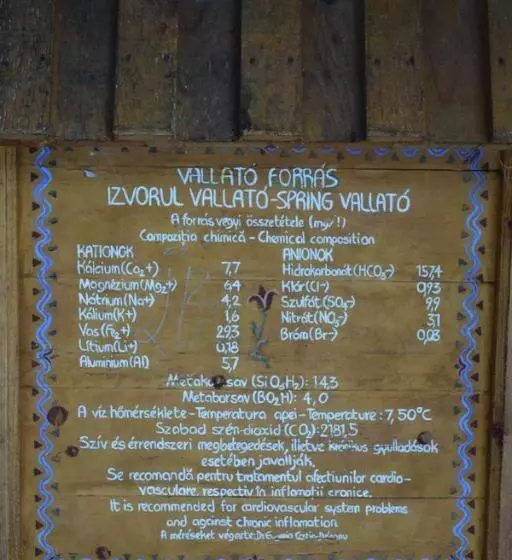 VALLATÓ FORRÁS
IZVORUL VALLATÓ-SPRING VALLATÓ
A forrás vegyi összetétele (mg/l)
Compoziția chimică - Chemical composition
KATIONOK ANIONOK
Kálcium(Ca2+) 7,7 Hidrokarbonát(HCO3-) 157,4
Magnézium(Mg2+) 6,4 Klór(Cl-) 0,93
Nátrium(Na+) 4,2 Szulfát(SO4-) 9,9
Kálium(K+) 1,6 Nitrát(NO3-) 3,1
Vas(Fe2+) 29,3 Bróm(Br-) 0,03
Lítium(Li+) 0,18
Aluminium(Al) 5,7
Metakovasav (SiO3H2): 14,3
Metaborsav (BO2H): 4,0
A víz hőmérséklete-Temperatura apei-Temperature: 7,50°C
Szabad szén-dioxid (CO2):2181,5
Szív és érrendszeri megbetegedések, illetve krónikus gyulladások
esetében javallják.
Se recomandă pentru tratamentul afecțiunilor cardio-
vasculare, respectiv în inflamații cronice.
It is recommended for cardiovascular system problems
and against chronic inflamation.
A méréseket végezte: Dr.